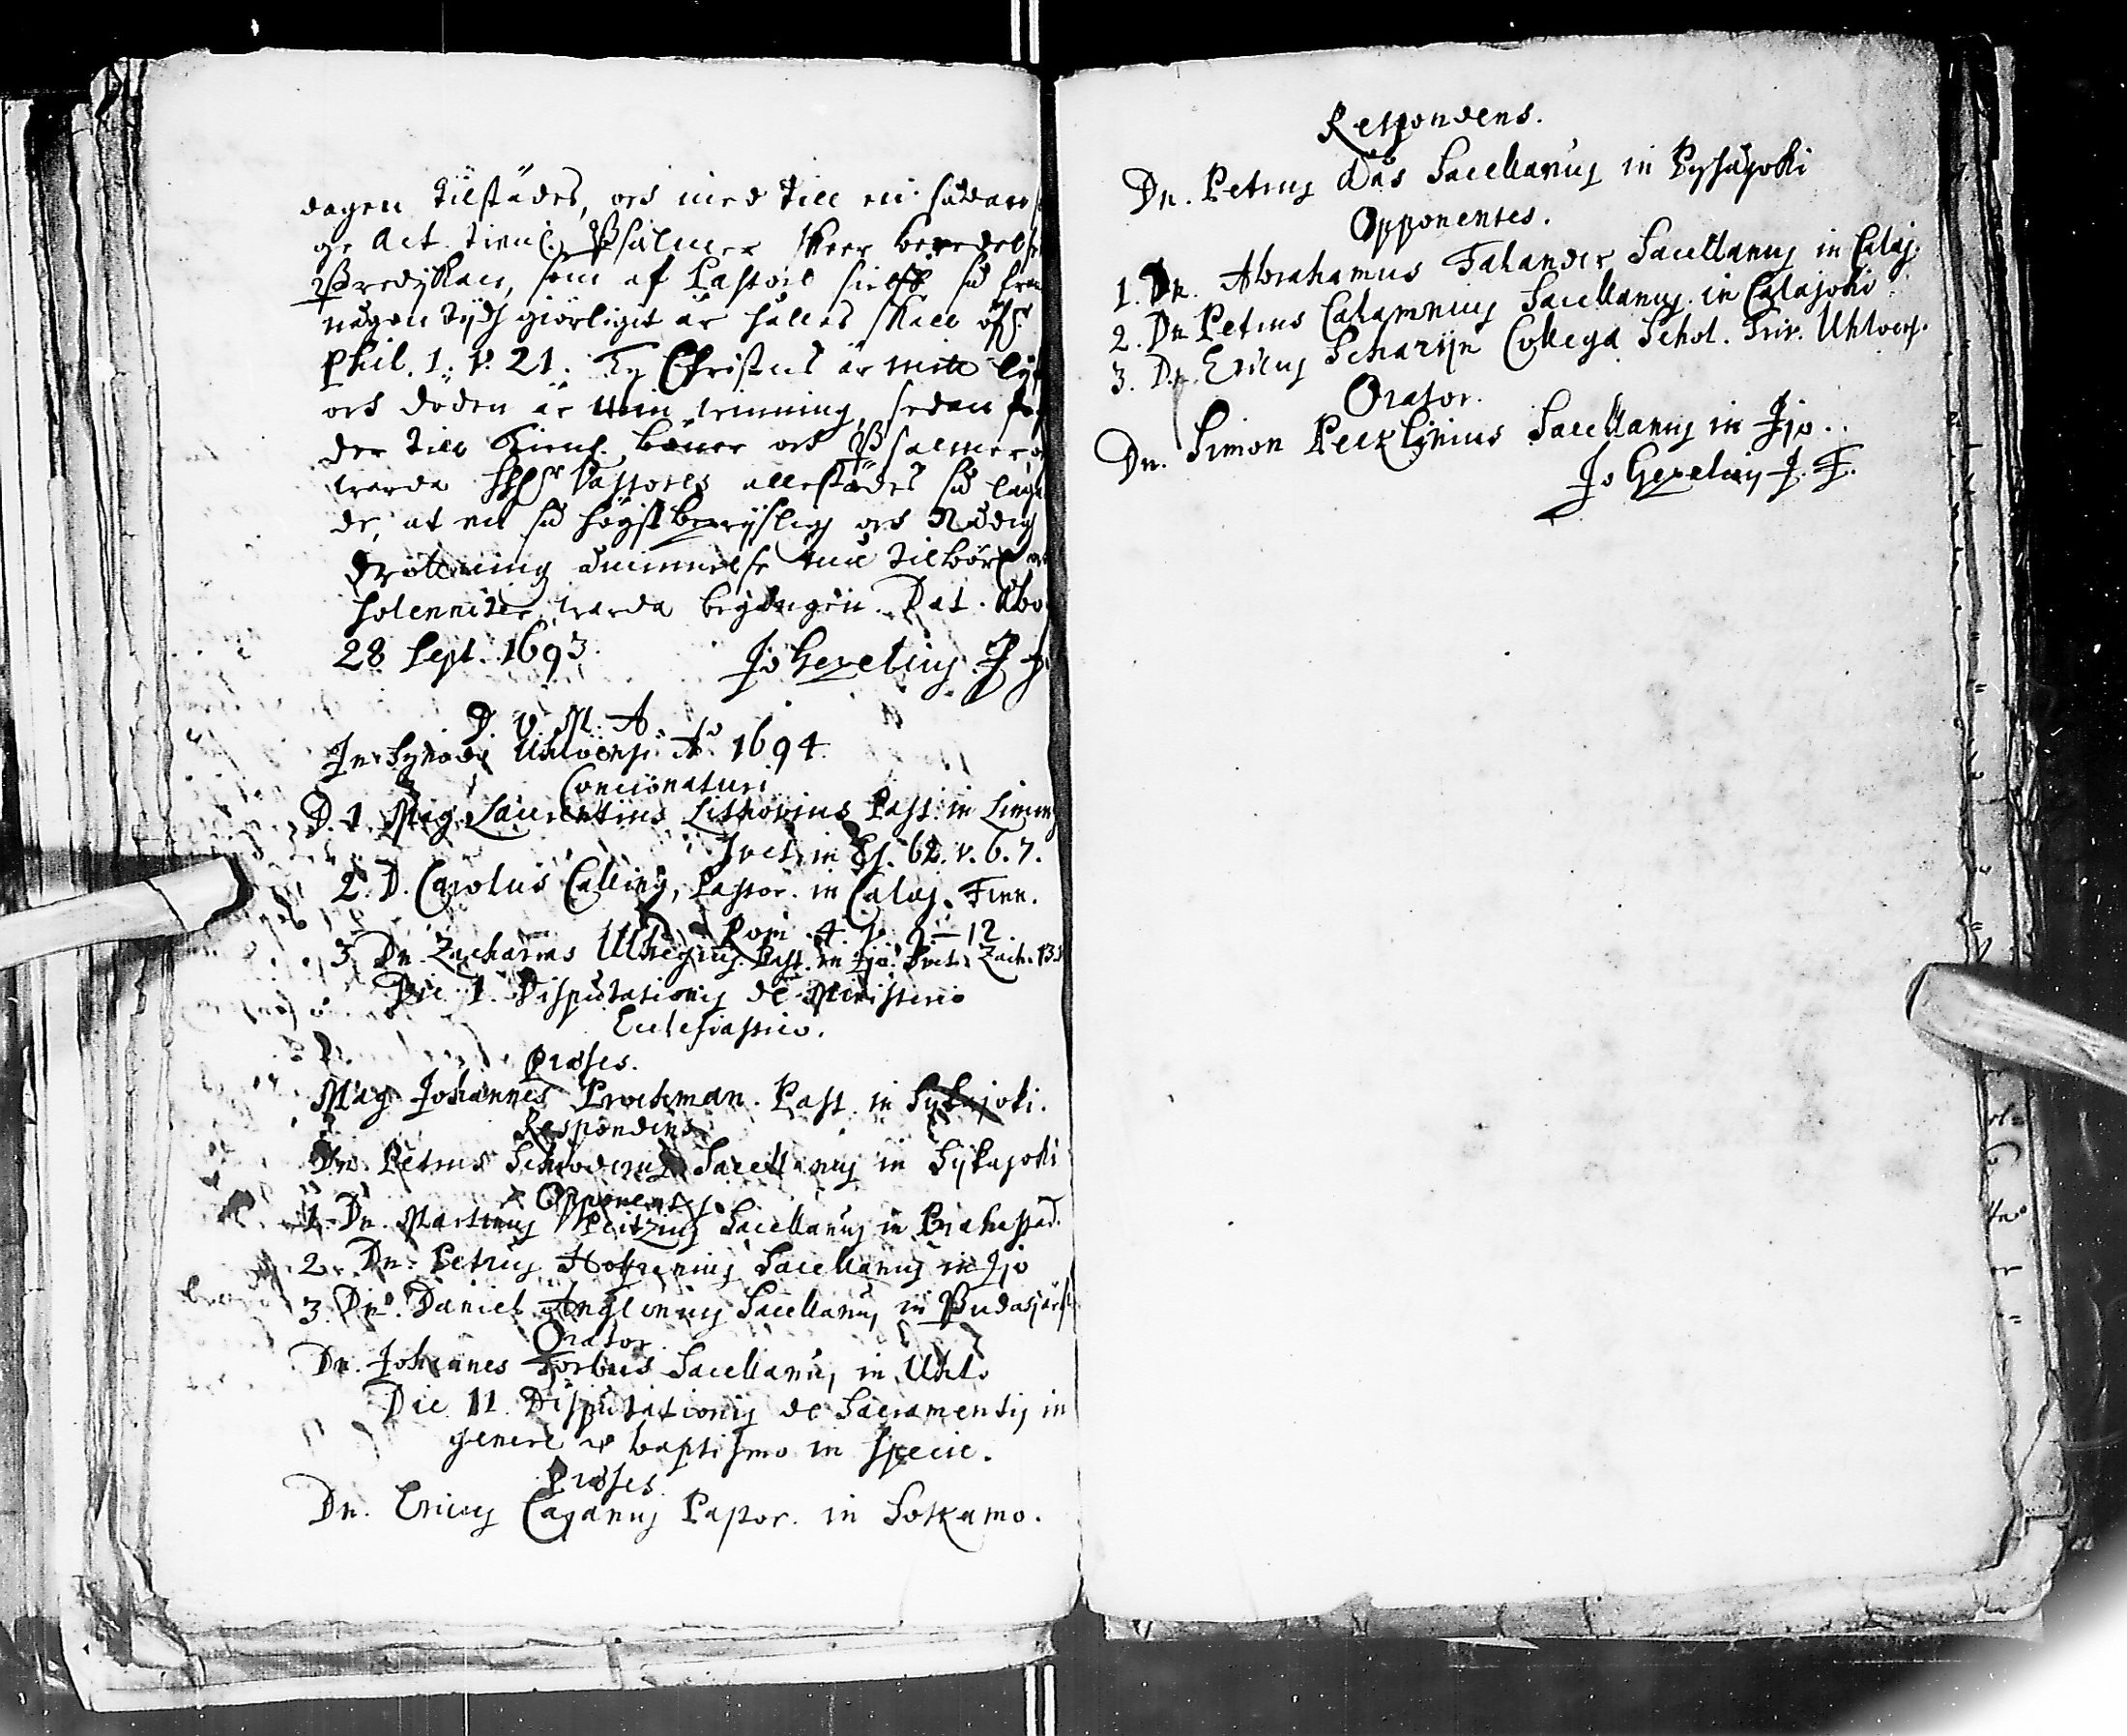 dagen tilstädes, och med till en sådan
ge Act tienl. Psalmer skeer beredelse
Predijkan, som af Pastore sielf så fram
någon tijdh giörligit är hålles skall öfr.
Phil. 1. v. 21. Ty Christus är mitt lijf
och döden är min winning, sedan
der till tienl. böner och Psalmer
warda Pastores allestädes så laga
de, at en så högst berijslig och Nådig
Drottning åminnelse må tilbörl.
solenniter warda begången. Dat. Åbo
28 Sept. 1693. Jo Gezelius J F
D. V. M. A
In Synodo Uhloënsi Ao 1694.
Concionaturi
D. 1 Mag. Laurentius Lithovius Past. in Liming
text in Es. 62. v. 6. 7.
2. D. Carolus Calling, Pastor. in Calaj. Finn.
Rom. 4. v. 9-12.
3 Dn. Zacharias Uhlegius Past. in Ijo. text. Zach. 13.
Die 1. Disputationis de Ministerio
Ecclesiastico.
Præses.
Mag. Johannes Prochman. Past. in Sykajoki.
Respondens
Dn. Petrus Schroderus Sacellanus in Sijkajoki
Opponent.
1. Dn. Martinus Peitzius Sacellanus in Brahestad.
2. Dn. Petrus Hofrenius Sacellanus in Ijo
3. Dn. Daniel Anglenius Sacellanus in Pudasjärfi
Orator
Dn. Johannes Forbus Sacellanus in Uhlo
Die 11. Disputationis de Sacramentis in
genere et baptismo in specie.
Præses.
Dn. Ericus Cajanus Pastor. in Sotkamo.
Respondens.
Dn. Petrus Åås Sacellanus in Pyhäjoki
Opponentes.
1. Dn. Abrahamus Falander Sacellanus in Calaj.
2. Dn Petrus Calamnius Sacellanus in Calajoki
3. Dn. Ericus Scharijn Collega Schol. Triv. Uhloens.
Orator.
Dn. Simon Peckzlinius Sacellanus in Ijo.
Jo Gezelius J. F.